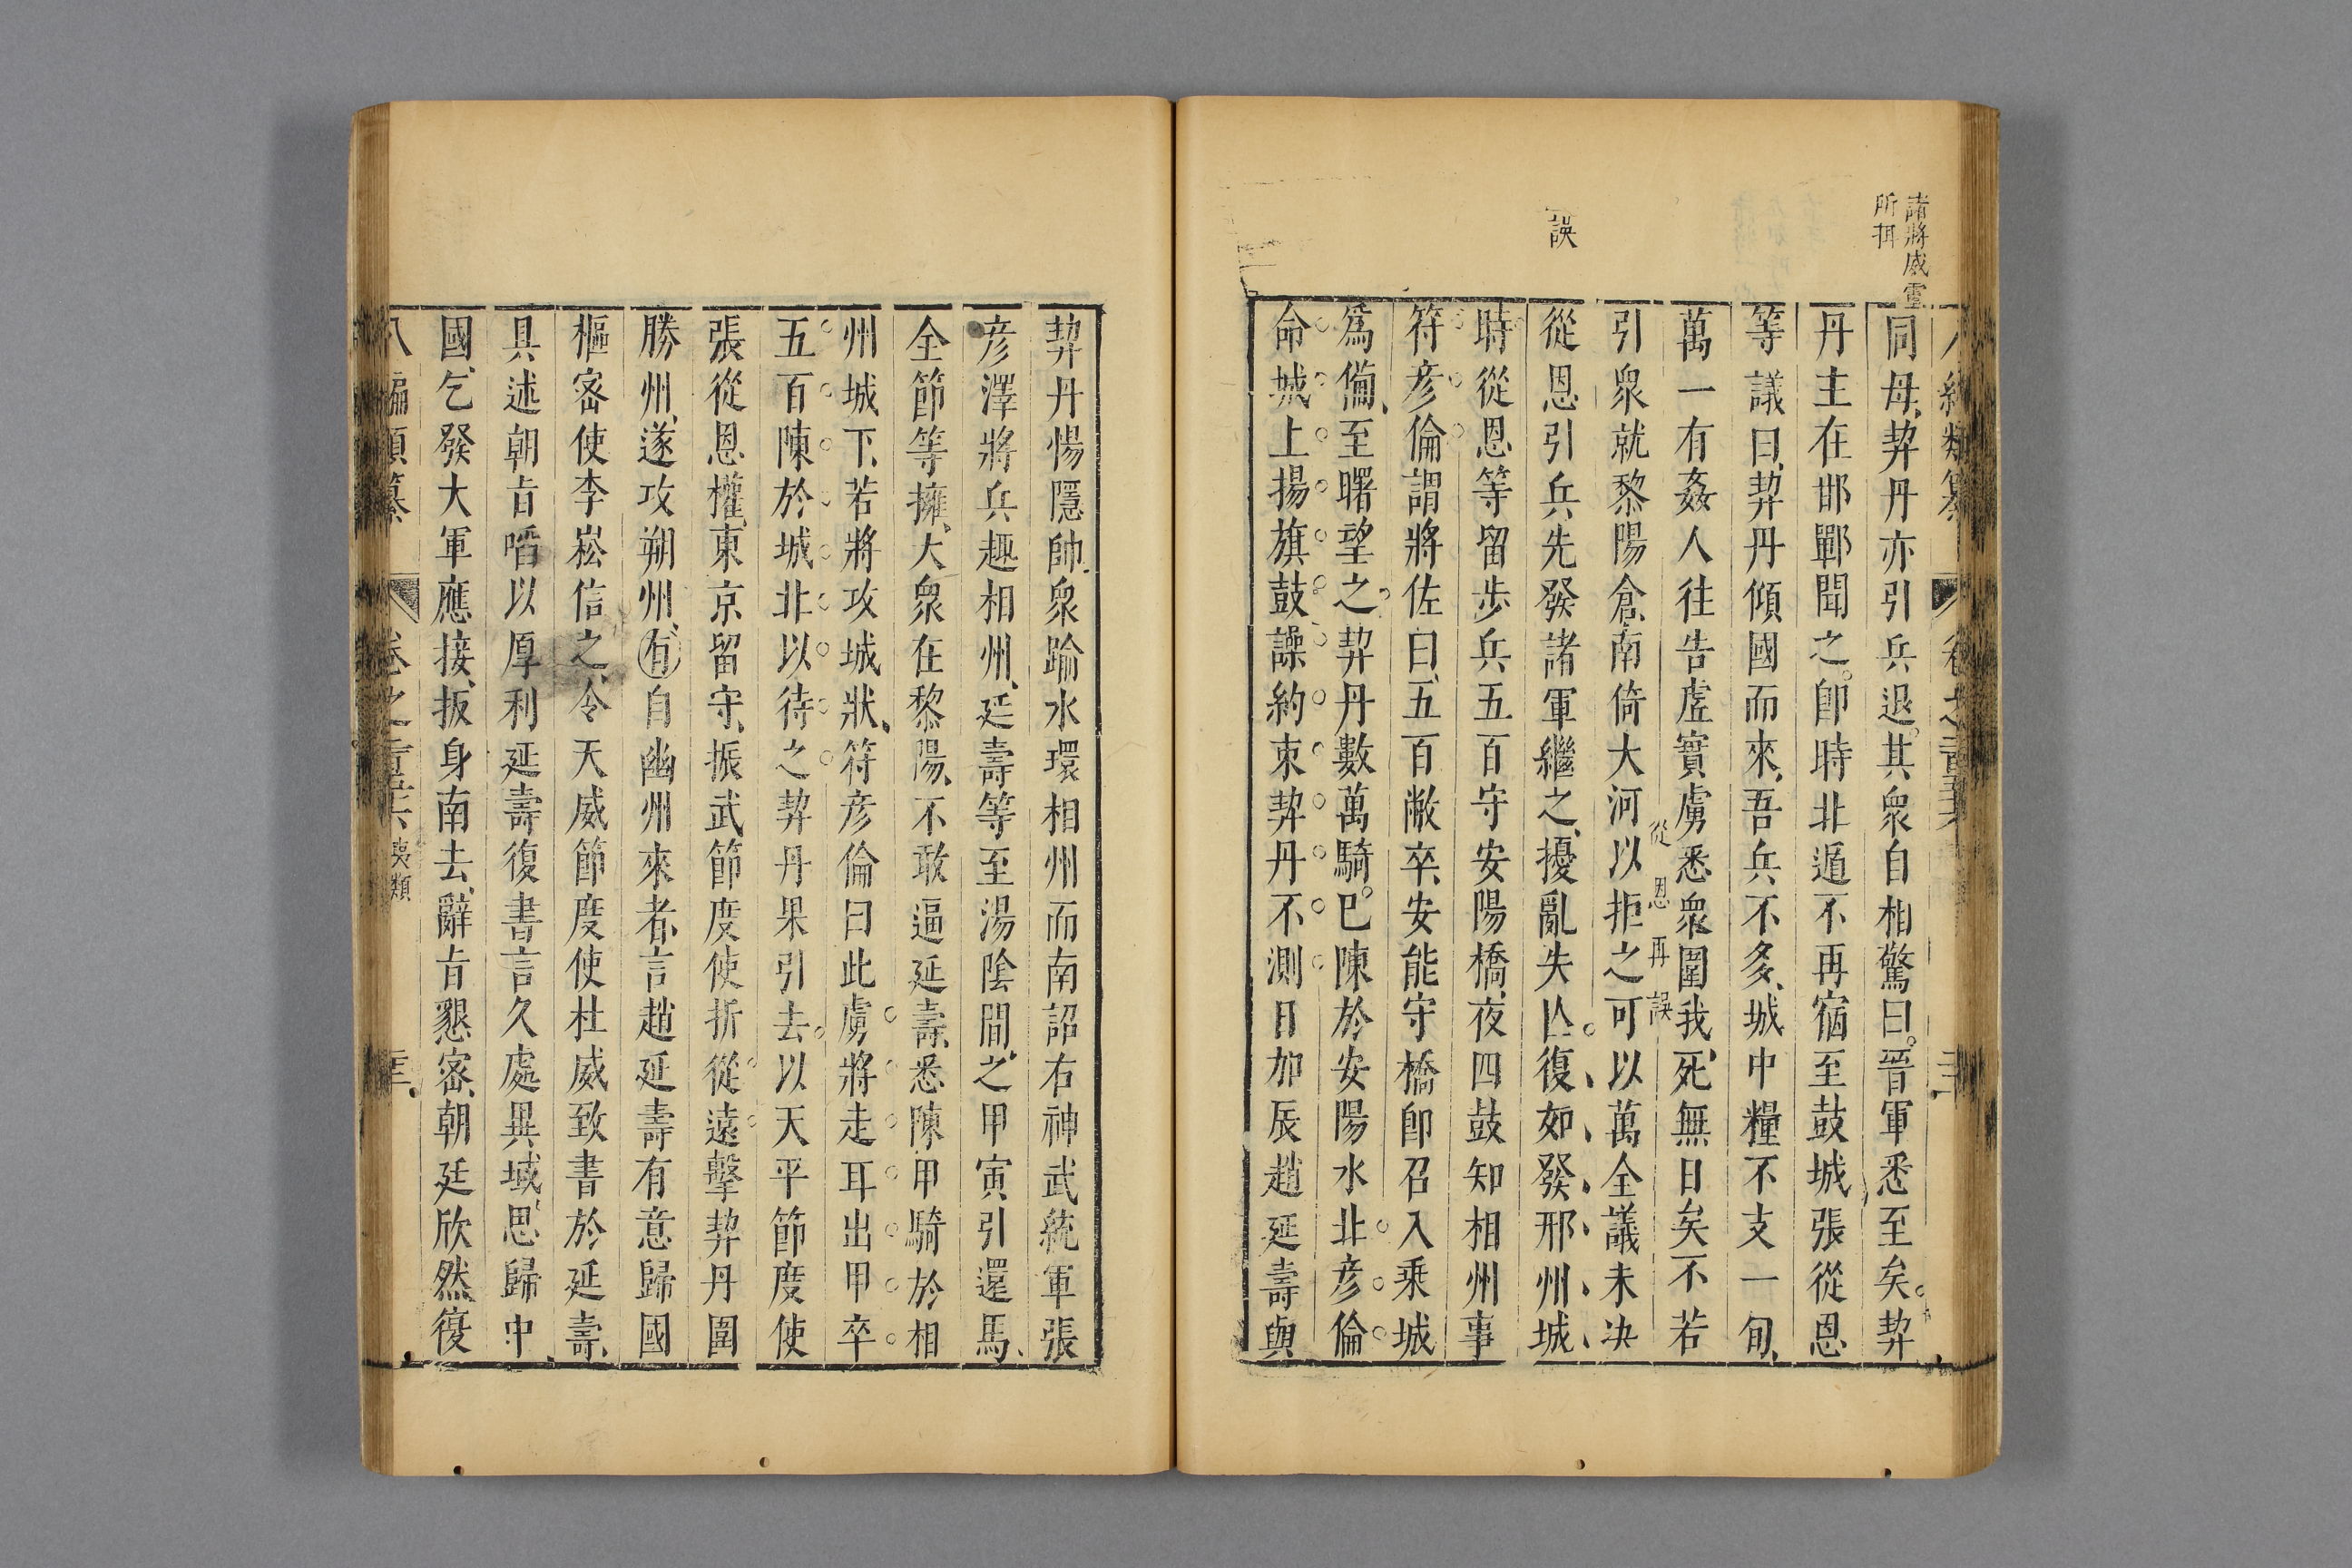 諸將威靈
所拑
誤
同母、契丹亦引兵退。其衆自相驚曰。晉軍悉至矣。契
丹主在邯鄲聞之。卽時北遁不再宿至鼓城張從恩
等議曰、契丹傾國而來、吾兵不多、城中糧不支一旬、
萬一有姦人往告虛實虜悉衆圍我、死無日矣不若
從恩再誤
引衆就黎陽倉、南倚大河以拒之可以萬全議未决
從恩引兵先發諸軍繼之、擾亂失亾。復如發邢州城、
時從恩等留步兵五百守安陽橋、夜四鼓知相州事
符彥倫謂將佐曰、五百敝卒、安能守橋卽召入乘城
爲備、至曙望之、契丹數萬騎。已陳於安陽水北彥倫
命城上揚旗鼓譟約束契丹不測日加辰趙延壽與
契丹惕隱帥衆踰水環相州而南詔右神武統軍張
彥澤將兵趣相州、延壽等至湯陰聞之、甲寅引還馬、
全節等擁、大衆在黎陽、不敢逼延壽、悉陳甲騎於相
州城下、若將攻城狀、符彥倫曰此虜將走耳出甲卒
五百陳於城北以待之契丹果引去。以天平節度使
張從恩權、東京留守、振武節度使折從遠擊契丹圍
勝州、遂攻朔州、有自幽州來者、言趙延壽有意歸國
樞密使李崧信之、令天威節度使杜威致書於延壽、
具述朝旨啗以厚利延壽復書言久處異域、思歸中
國、乞發大軍應接、扳身南去、辭旨懇密、朝廷欣然復
八編類纂 卷之 夷類